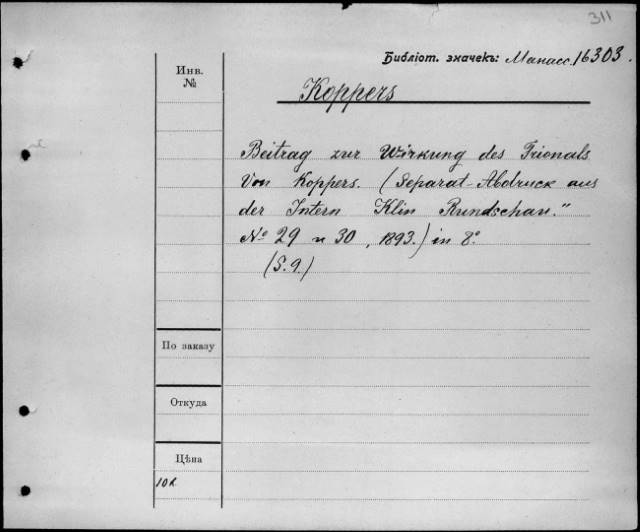 311
Библіот. значекъ: Манасс. 16303.
Инв.
№
Koppers
Beitrag zur Wirkung des Trionals
Von Koppers. (Separat-Abdruck aus
der Intern Klin Rundschau."
№ 29 u 30, 1893.) in 8°.
(S.9.)
По заказу
Откуда
Цѣна
10к